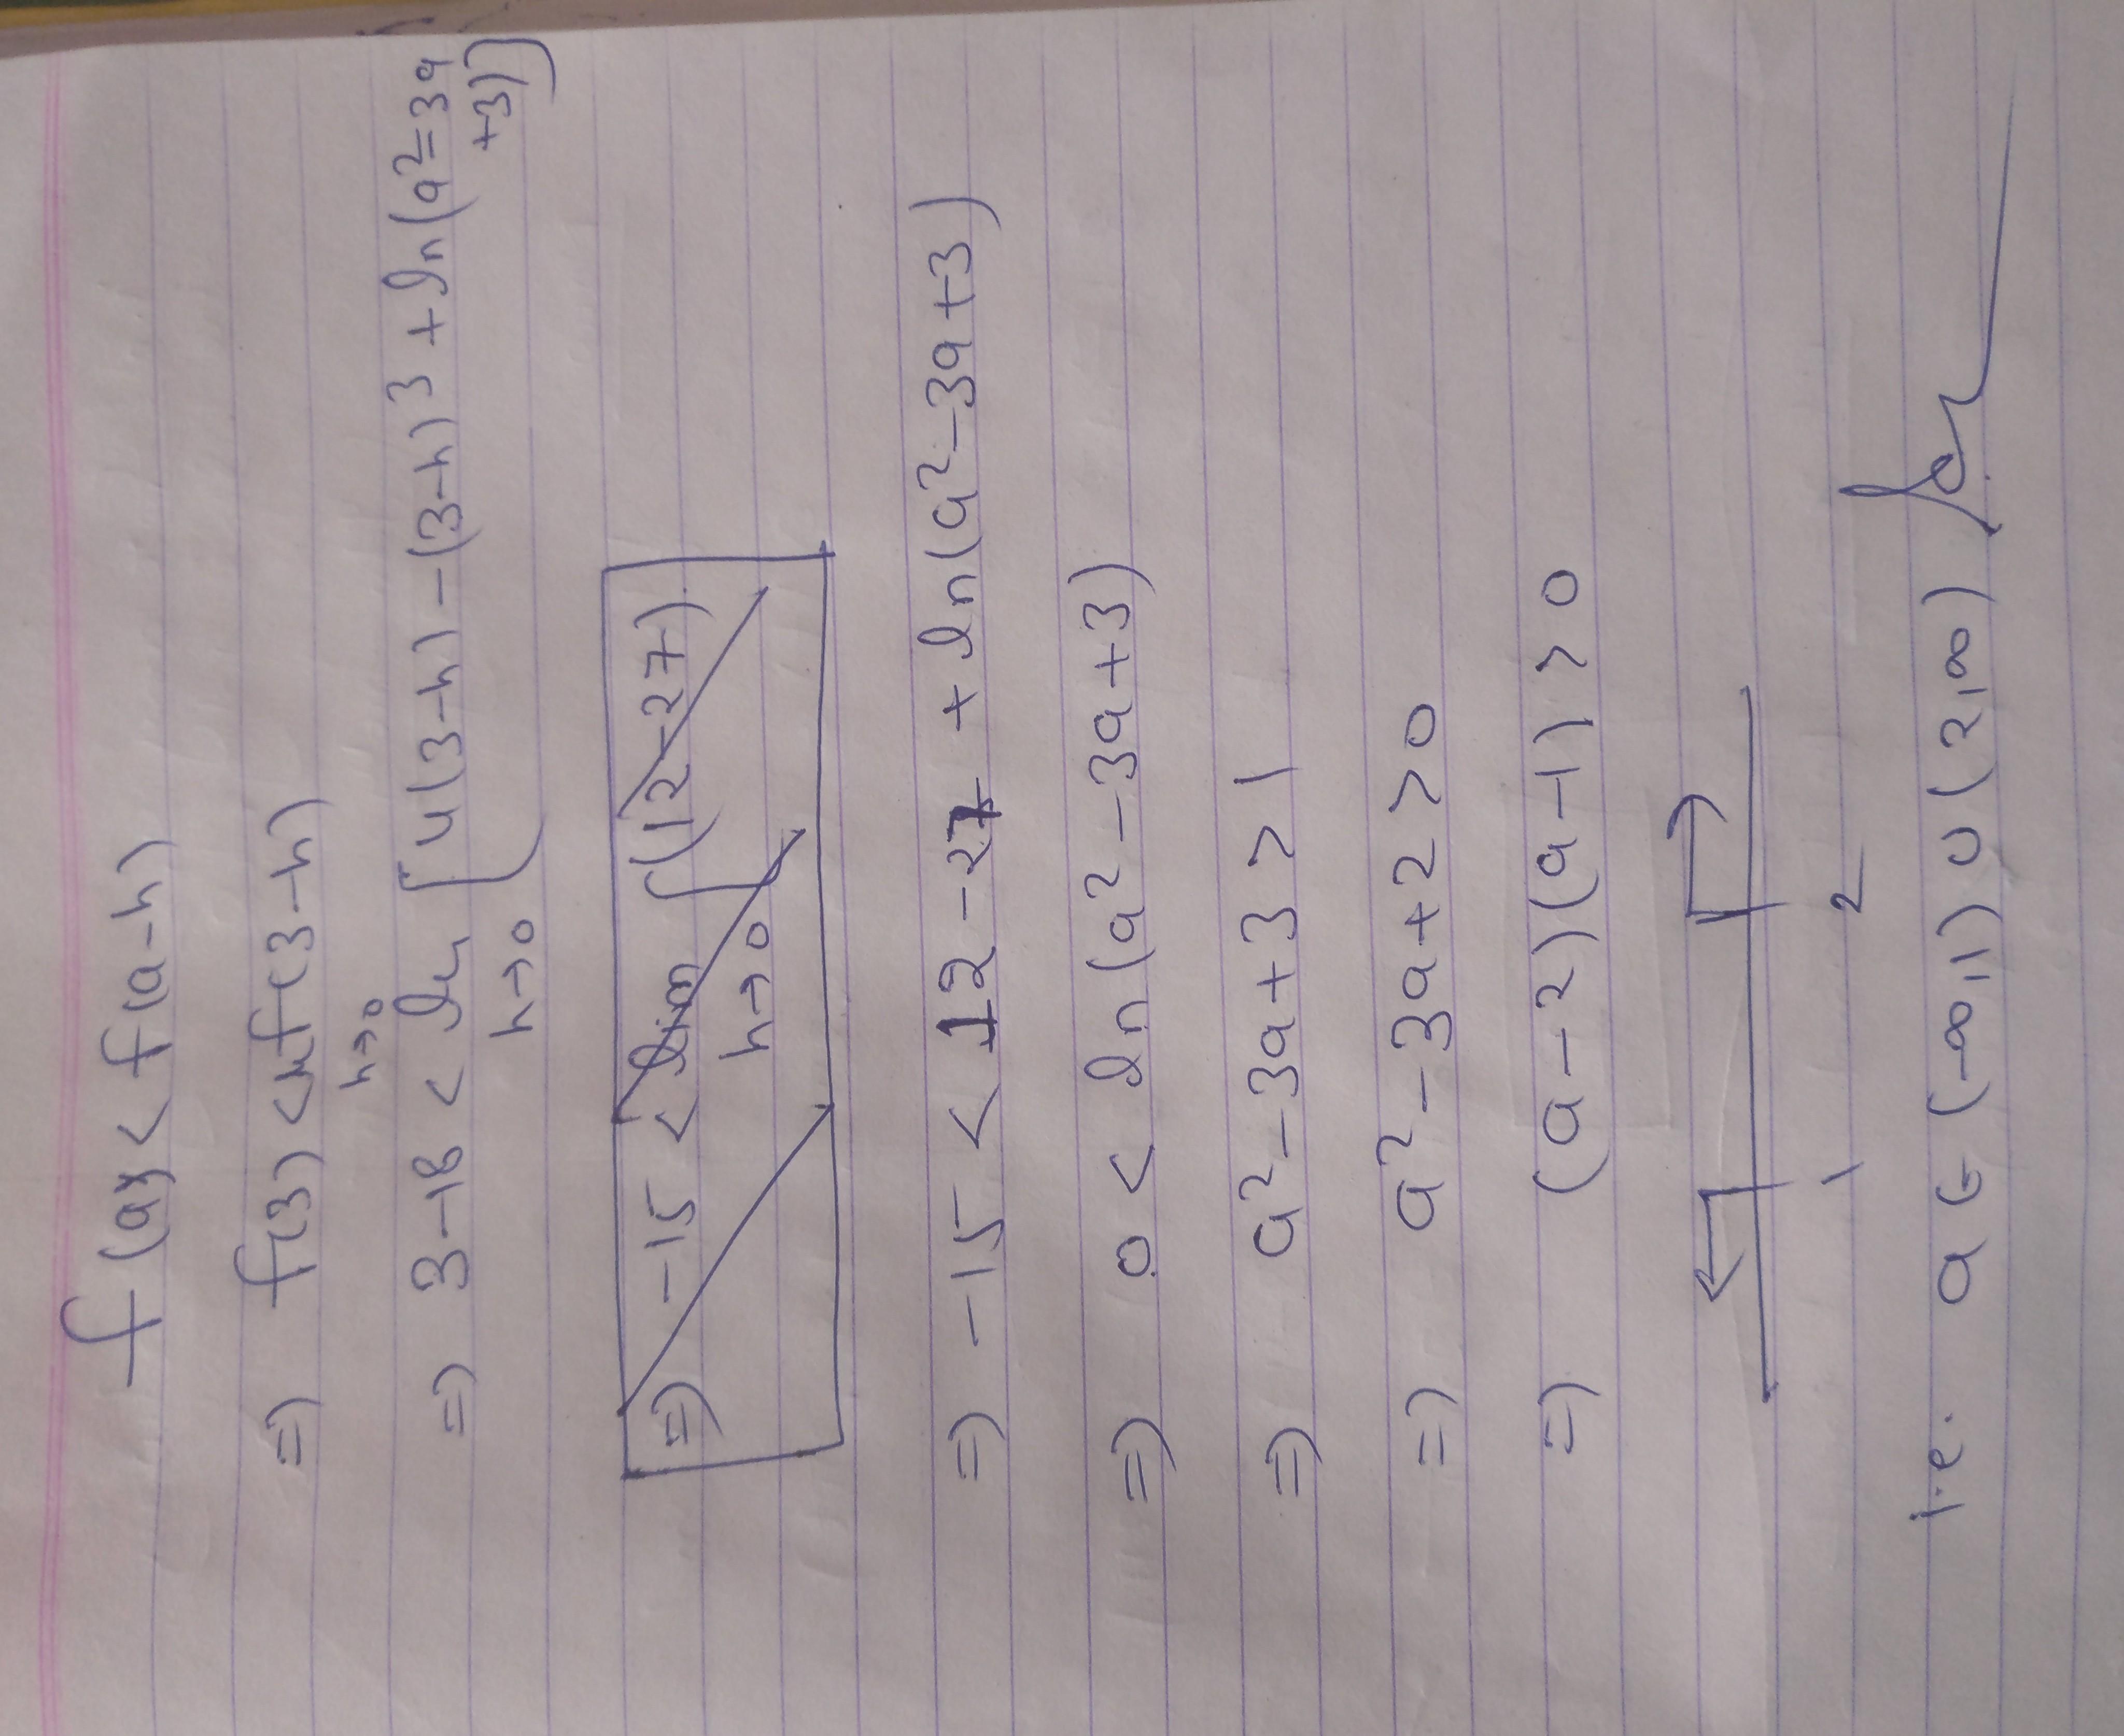 f(a) < f(a-h)
=) f(3) < lt f(3-h)
h→0
=) 3-18 < [4(3-h) - (3-h)³ + ln(a²=3a
h→0 +3)]
=) -15 < lim [(12-27)
h→0
=) -15 < 12-27 + ln(a²-3a+3)
=) 0 < ln(a²-3a+3)
=) a²-3a+3 > 1
=) a²-3a+2 > 0
=) (a-2)(a-1) > 0
1 2
i.e. a ∈ (-∞,1) ∪ (2,∞)